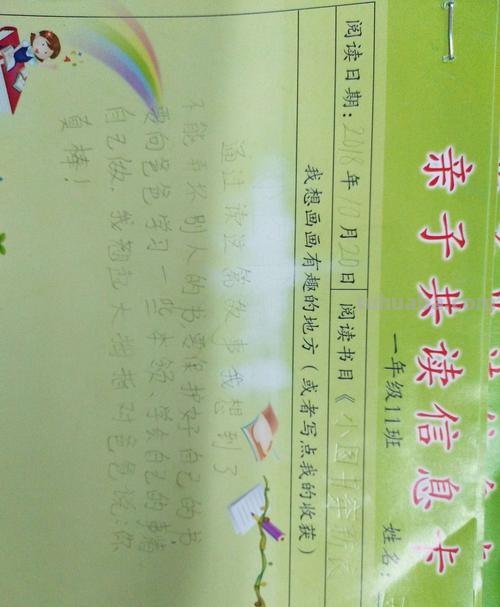 亲子共读信息卡
一年级11班 姓名：
阅读日期：2018年10月20日 阅读书目《小图书
我想画画有趣的地方（或者写点我的收获）
通过读这篇故事我想到了
不能弄坏别人的书要保护好自己的书
要向爸爸学习一些本领、学会自己的事情
自己做。我翘起大拇指对爸爸说：你
真棒！